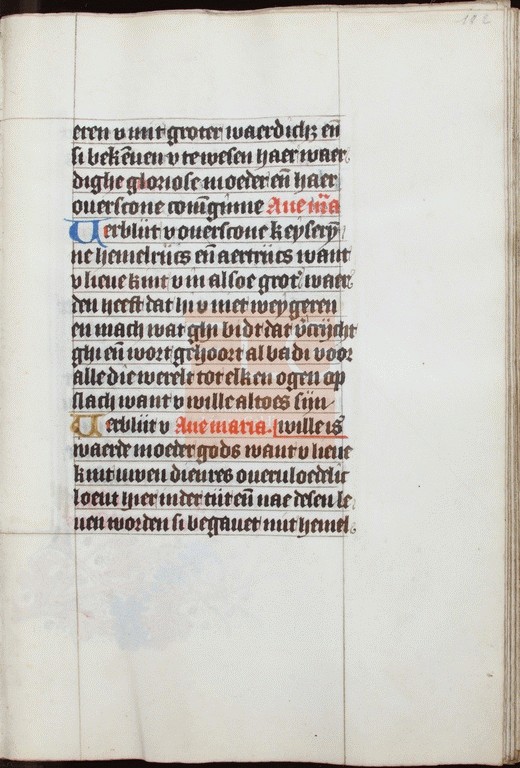 182
eren v mit groter waerdichz en̄
si bekēnen v te wesen haer waer
dighe gloriose moeder en̄ haer
ouerscone conīginne Aue mīa
Verbliit v ouerscone keyserȳ
ne hemelriics en̄ aertriics want
v lieue kint v in alsoe grot' waer
den heeft dat hi v niet weygeren
en mach wat ghi bidt dat v'criicht
ghi en̄ wort gehoort al badi voor
alle die werelt tot elken ogen op
slach want v wille altoes siin
Verbliit v Aue maria. wille is
waerde moeder gods want v lieue
kint uwen dieures oueruloedelic
loent hier inder tiit en̄ nae desen le
uen worden si begauet mit hemel